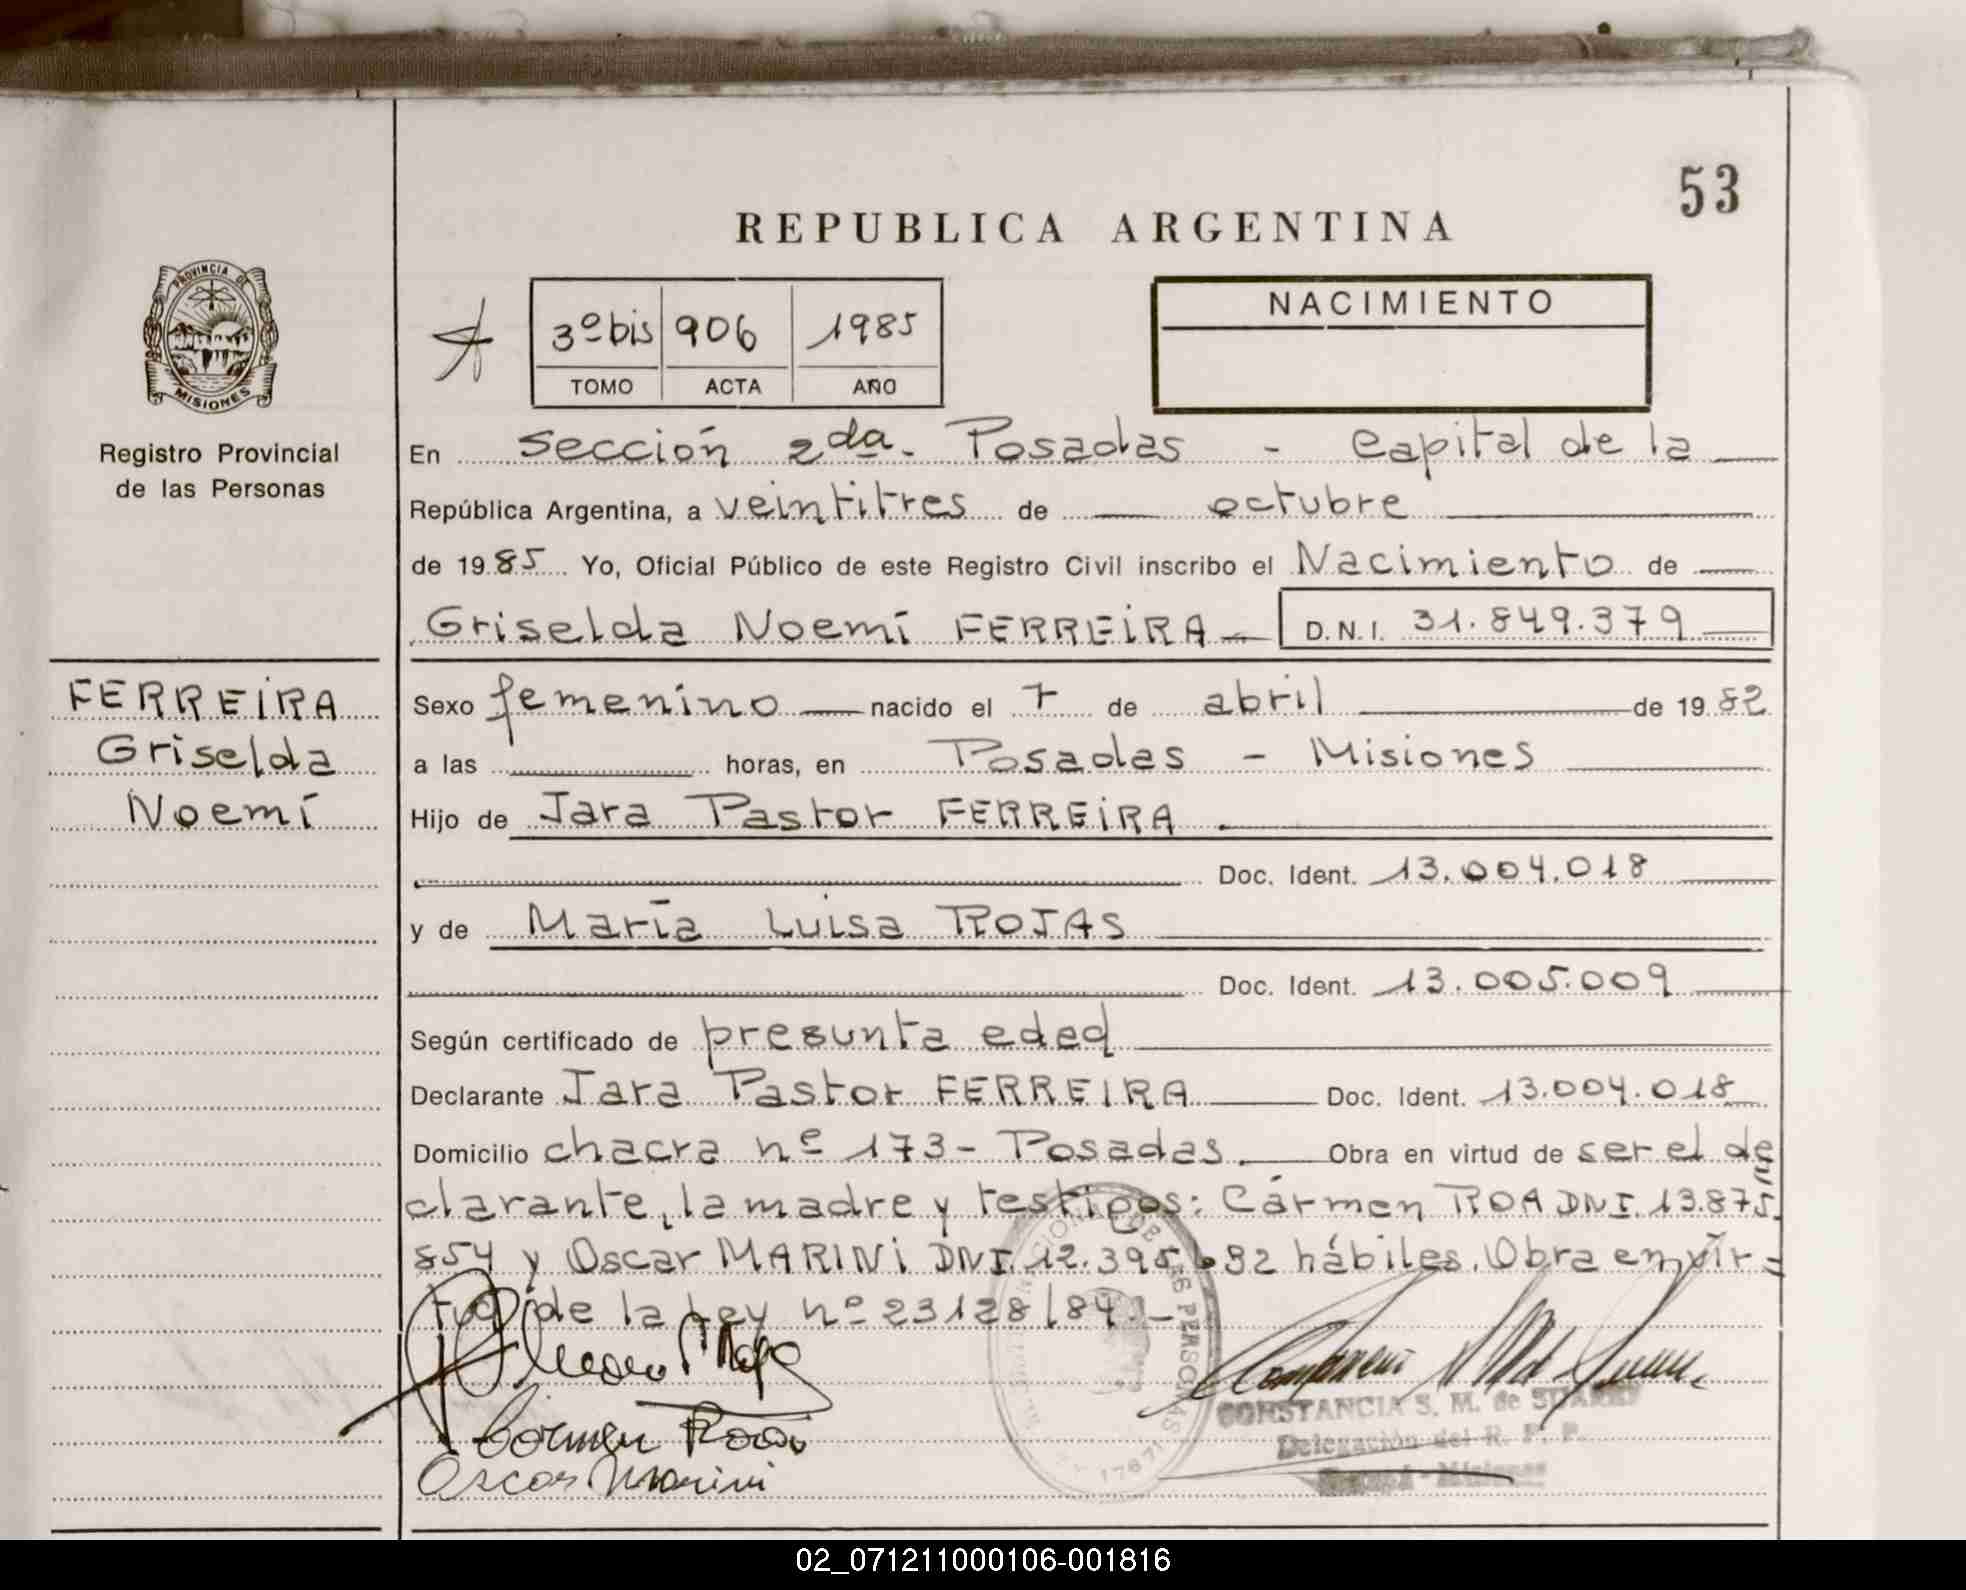 53
REPUBLICA ARGENTINA
PROVINCIA DE
MISIONES
Registro Provincial
de las Personas
3º bis 906 1985
TOMO ACTA AÑO
NACIMIENTO
En Sección 2da. Posadas - Capital de la
República Argentina, a veintitres de octubre
de 1985 Yo, Oficial Público de este Registro Civil inscribo el Nacimiento de
Griselda Noemí FERREIRA D.N.I. 31.849.379
FERREIRA
Griselda
Noemí
Sexo femenino nacido el 7 de abril de 1982
a las horas, en Posadas - Misiones
Hijo de Jara Pastor FERREIRA
Doc. Ident. 13.004.018
y de María Luisa ROJAS
Doc. Ident. 13.005.009
Según certificado de presunta edad
Declarante Jara Pastor FERREIRA Doc. Ident. 13.004.018
Domicilio chacra nº 173 - Posadas. Obra en virtud de ser el de
clarante, la madre y testigos: Cármen ROA DNI. 13.875.
854 y Oscar MARINI DNI. 12.395.692 hábiles. Obra en vir=
tud de la Ley nº 23128/84.-
Carmen Roa
Oscar Marini
CONSTANCIA S. M. de SUAREZ
Delegación del R. P. P.
Misiones
02_071211000106-001816